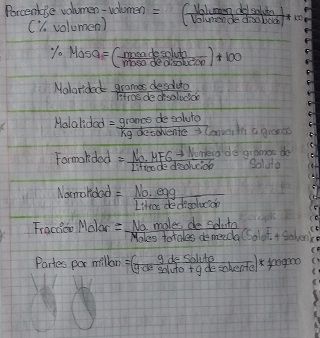 Porcentaje volumen-volumen = (Volumen del soluto / Volumen de disolución) * 100
(% volumen)
% Masa = (masa de soluto / masa de disolución) * 100
Molaridad = gramos de soluto / litros de disolución
Molalidad = gramos de soluto / Kg de solvente → Convertir a gramos
Formalidad = No. MFG → Numero de gramos de soluto / Litros de disolución
Normalidad = No. eqg / Litros de disolución
Fracción Molar = No. moles de soluto / Moles totales de mezcla (Solut. + Solven)
Partes por millon = (g de soluto / g de soluto + g de solvente) * 1000000